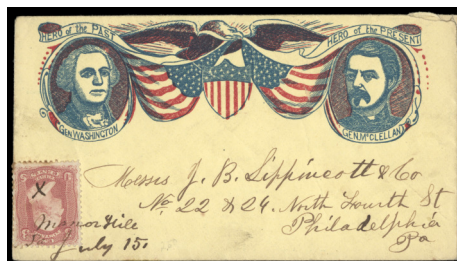 HERO of the PAST
HERO of the PRESENT
GEN WASHINGTON
GEN. McCLELLAN
Messrs J. B. Lippincott & Co
No. 22 & 24. North Fourth St
Philadelphia
Pa
X
July 15.